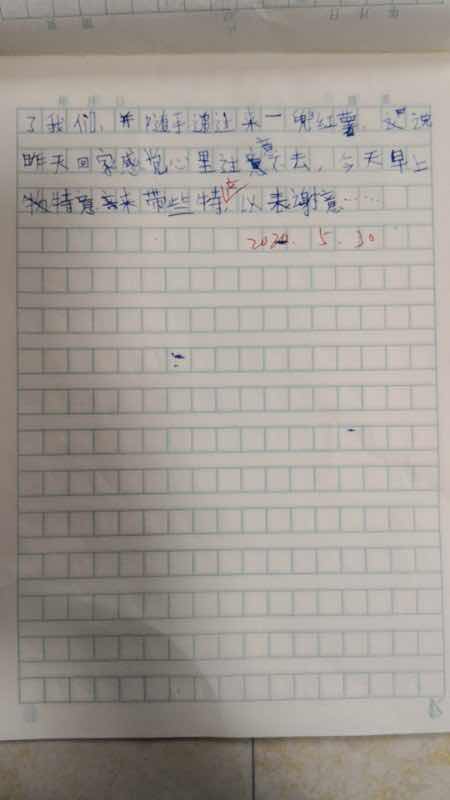 了我们，并随手递过来一兜红薯，又说
昨天回家感觉心里过意不去，今天早上
特意来带些特产，以表谢意……
2020.5.30